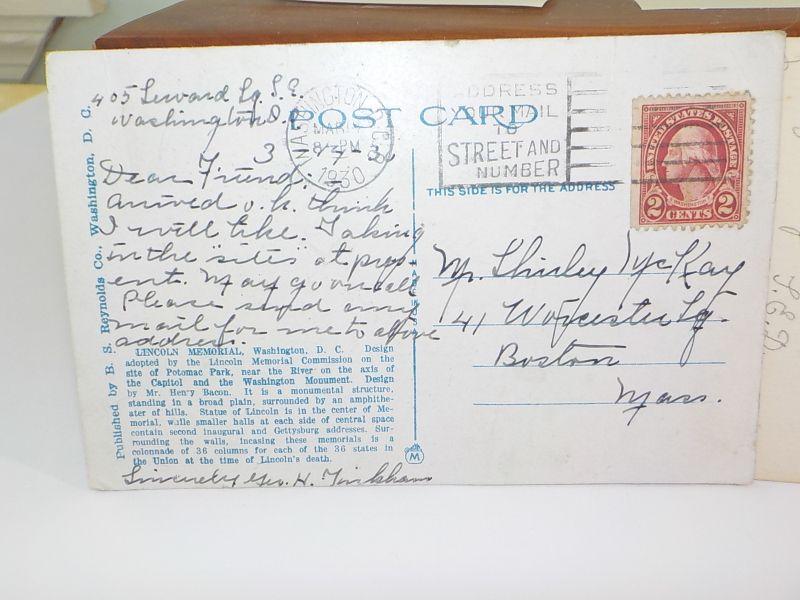 405 Seward Sq. S.E.
Washington D.
3 - 17 - 30
Dear Friend:
Arrived o.k. think
I will like. Taking
in the "sites" at pres
ent. May go on
Please send any
mail for me to above
address.
Sincerely Geo. H. Tinkham
Published by B. S. Reynolds Co., Washington, D. C.
LINCOLN MEMORIAL, Washington, D. C. Design
adopted by the Lincoln Memorial Commission on the
site of Potomac Park, near the River on the axis of
the Capitol and the Washington Monument. Design
by Mr. Henry Bacon. It is a monumental structure,
standing in a broad plain, surrounded by an amphithe-
ater of hills. Statue of Lincoln is in the center of Me-
morial, while smaller halls at each side of central space
contain second inaugural and Gettysburg addresses. Sur-
rounding the walls, incasing these memorials is a
colonnade of 36 columns for each of the 36 states in
the Union at the time of Lincoln's death.
POST CARD
WASHINGTON
MAR
PM
1930
ADDRESS
YOUR MAIL
TO
STREET AND
NUMBER
THIS SIDE IS FOR THE ADDRESS
UNITED STATES POSTAGE
WASHINGTON
2 CENTS 2
Mr. Shirley McKay
41 Worcester Sq.
Boston
Mass.
M